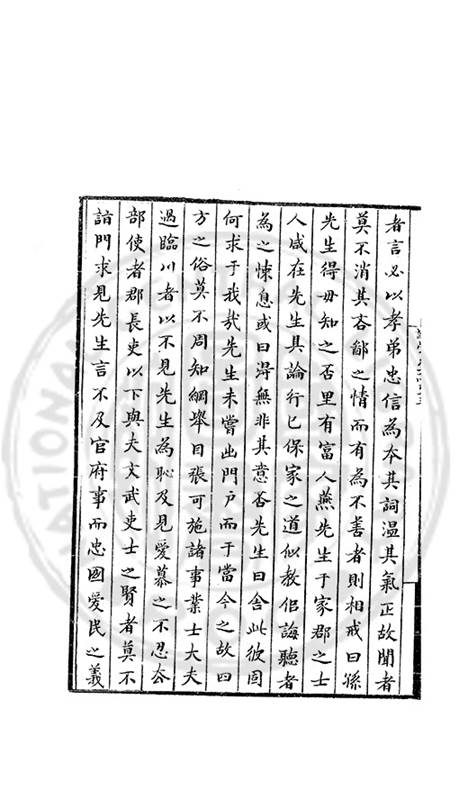 者言必以孝弟忠信為本其詞温其氣正故聞者
莫不消其吝鄙之情而有為不善者則相戒曰孫
先生得毋知之否里有富人燕先生于家郡之士
人咸在先生具論行已保家之道似教侣誨聽者
為之悚息或曰得無非其意否先生曰舍此彼固
何求于我哉先生未嘗出門户而于當今之故四
方之俗莫不周知綱舉目張可施諸事業士大夫
過臨川者以不見先生為恥及見愛慕之不忍去
部使者郡長吏以下與夫文武吏士之賢者莫不
詣門求見先生言不及官府事而忠國愛民之義